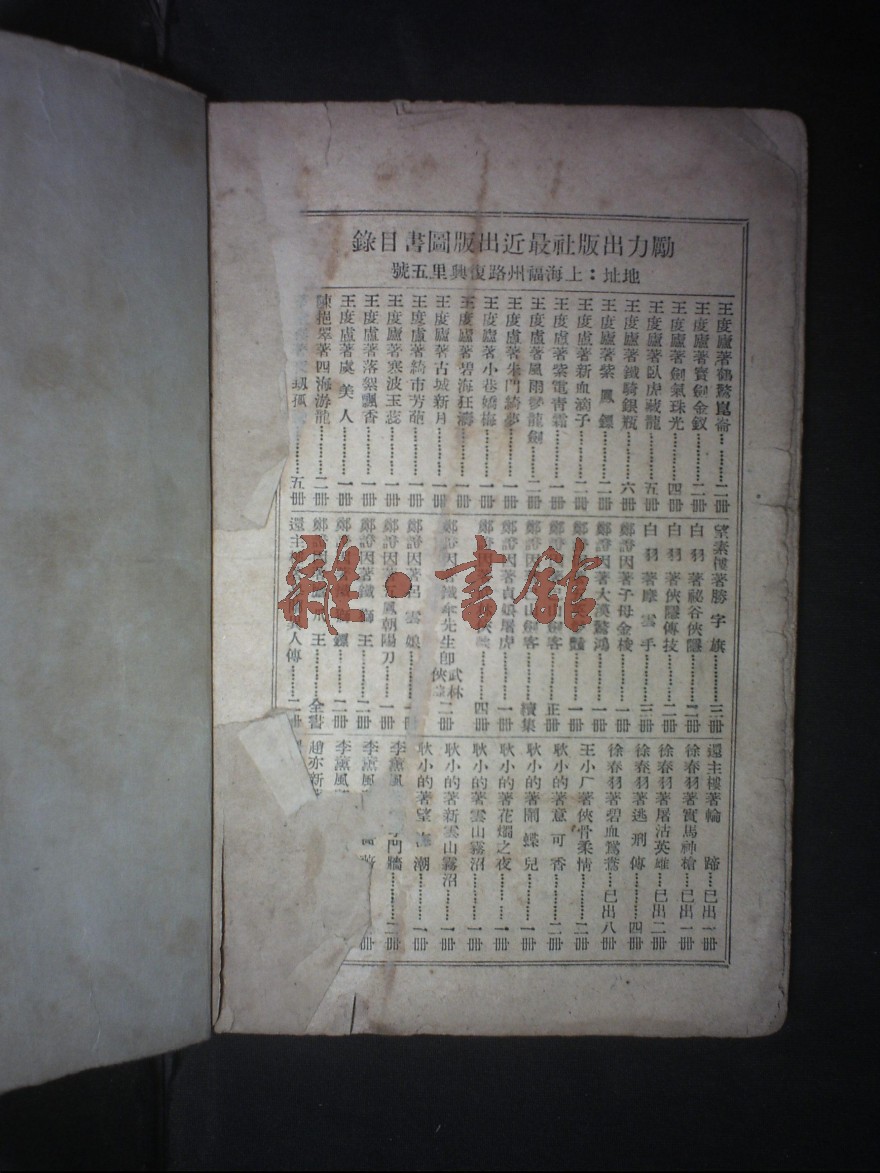 勵力出版社最近出版圖書目錄
地址：上海福州路復興里五號
王度廬著鶴驚崑崙…………二冊
王度廬著寶劍金釵…………二冊
王度廬著劍氣珠光…………四冊
王度廬著臥虎藏龍…………五冊
王度廬著鐵騎銀瓶…………六冊
王度廬著紫鳳鏢…………二冊
王度盧著新血滴子…………二冊
王度廬著紫電青霜…………一冊
王度廬著風雨雙龍劍…………二冊
王度盧著朱門綺夢…………一冊
王度廬著小巷嬌梅…………一冊
王度廬著碧海狂濤…………一冊
王度廬著古城新月…………一冊
王度盧著綺市芳葩…………一冊
王度廬著寒波玉蕊…………一冊
王度盧著落絮飄香…………一冊
王度盧著虞美人…………一冊
陳挹翠著四海游龍…………二冊
…………五冊
望素樓著勝字旗…………三冊
白羽著祕谷俠隱…………二冊
白羽著俠隱傳技…………二冊
白羽著摩雲手…………三冊
鄭證因著子母金梭…………一冊
鄭證因著大漠驚鴻…………一冊
鄭證因…………一冊
鄭證因…劍客…………正
鄭證因…山劍客…………續集
鄭證因著貞娘屠虎…………一冊
鄭證因…………四冊
鄭證因著鐵傘先生即武林俠…二冊
鄭證因著呂雲娘…………一冊
鄭證因…風朝陽刀…………一冊
鄭證因著鐵獅王…………二冊
鄭…鏢…………二冊
鄭證因…王…………全書
還主…人傳…………二冊
還主樓著輪蹄…已出一冊
徐春羽著寶馬神槍…已出一冊
徐春羽著屠沽英雄…已出二冊
徐春羽著逃刑傳…………四冊
徐春羽著碧血鴛鴦…已出八冊
王小厂著俠骨柔情…………二冊
耿小的著意可香…………二冊
耿小的著鬧蝶兒…………一冊
耿小的著花燭之夜…………一冊
耿小的著雲山霧沼…………一冊
耿小的著新雲山霧沼…………一冊
耿小的著望海潮…………一冊
李薰風…門牆…………二冊
李薰風…冊
李薰風…冊
趙亦新
雜·書館